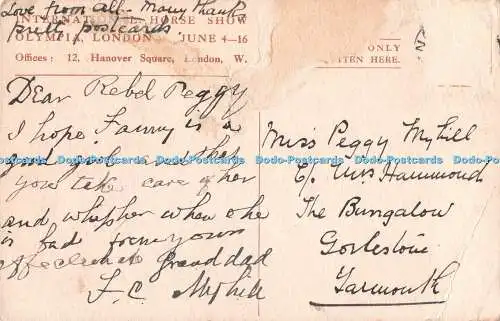 Love from all - Many thanks
pretty postcards.
INTERNATIONAL HORSE SHOW
OLYMPIA, LONDON JUNE 4-16
Offices: 12, Hanover Square, London, W.
ONLY
TEN HERE.
Dear Rebel Peggy
I hope Fanny is a
good girl and that
you take care of her
and whipher when she
is bad from your
Affectionate Granddad
F. C. Myhill
Miss Peggy Myhill
C/o Mrs Hammond
The Bungalow
Gorlestone
Yarmouth
Dodo-Postcards Dodo-Postcards Dodo-Postcards Dodo-Postcards Dodo-Postcards